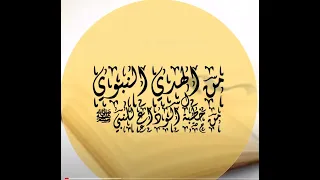 من الهدي النبوي
من خطبة الوداع للنبي ﷺ